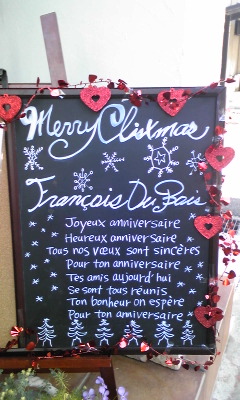 Merry Clistmas
François Du Bais
Joyeux anniversaire
Heureux anniversaire
Tous nos vœux sont sincères
Pour ton anniversaire
Tes amis aujourd'hui
Se sont tous réunis
Ton bonheur on espère
Pour ton anniversaire